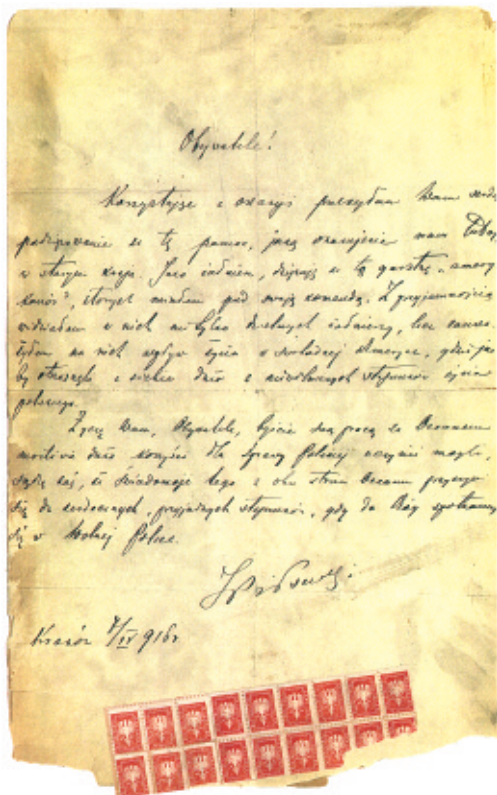 Obywatele!
Korzystając z okazyi przesyłam Wam
podziękowanie za tę pomoc, jaką okazujecie nam
w starym kraju. Jako żołnierz, dziękuję za tę garstkę "amery
kanów", których miałem pod swoją komendą. Z przyjemnością
widziałem w nich nie tylko dzielnych żołnierzy, lecz
na nich wpływ życia w Ameryce, gdzie
z siebie dużo z niewolniczych życia
polskiego.
Życzę Wam, Obywatele, byście swą pracą za Oceanem
możliwie dużo korzyści dla sprawy Polskiej uczynić mogli,
sądzę zaś, że tego z obu stron Oceanu
się do serdecznych, przyjaznych stosunków, gdy da Bóg spotkamy
się w Wolnej Polsce.
JPiłsudski
Kraków 7/IV 916r